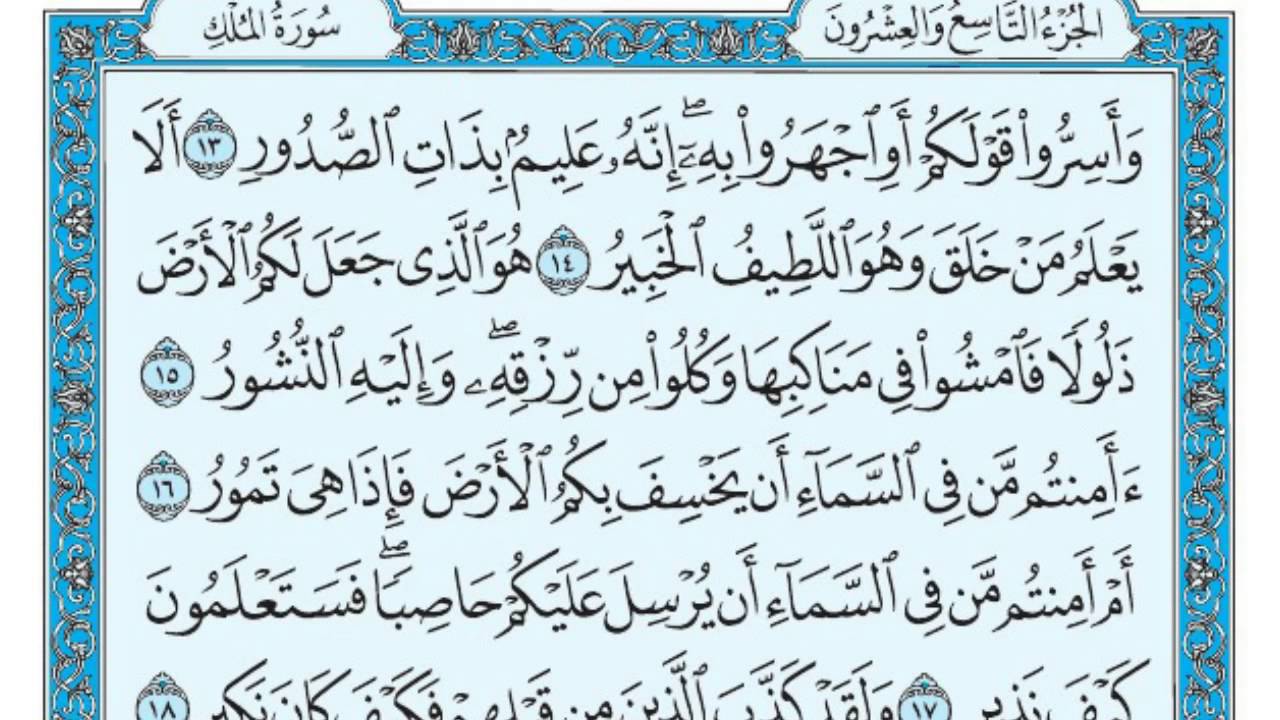 الجُزْءُ التَّاسِعُ وَالعِشْرُونَ
سُورَةُ المُلْكِ
وَأَسِرُّوا۟ قَوْلَكُمْ أَوِ ٱجْهَرُوا۟ بِهِۦٓ ۖ إِنَّهُۥ عَلِيمٌۢ بِذَاتِ ٱلصُّدُورِ ١٣ أَلَا
يَعْلَمُ مَنْ خَلَقَ وَهُوَ ٱللَّطِيفُ ٱلْخَبِيرُ ١٤ هُوَ ٱلَّذِى جَعَلَ لَكُمُ ٱلْأَرْضَ
ذَلُولًا فَٱمْشُوا۟ فِى مَنَاكِبِهَا وَكُلُوا۟ مِن رِّزْقِهِۦ ۖ وَإِلَيْهِ ٱلنُّشُورُ ١٥
ءَأَمِنتُم مَّن فِى ٱلسَّمَآءِ أَن يَخْسِفَ بِكُمُ ٱلْأَرْضَ فَإِذَا هِىَ تَمُورُ ١٦
أَمْ أَمِنتُم مَّن فِى ٱلسَّمَآءِ أَن يُرْسِلَ عَلَيْكُمْ حَاصِبًا ۖ فَسَتَعْلَمُونَ
كَيْفَ نَذِيرِ ١٧ وَلَقَدْ كَذَّبَ ٱلَّذِينَ مِن قَبْلِهِمْ فَكَيْفَ كَانَ نَكِيرِ ١٨